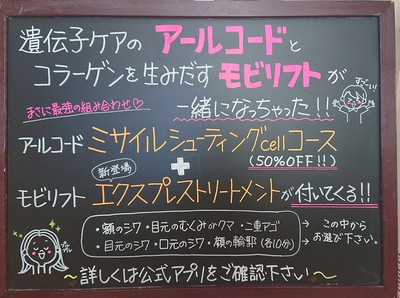 遺伝子ケアの アールコードと
コラーゲンを生みだす モビリフトが
まさに最強の組み合わせ♡
一緒になっちゃった!!
アールコード ミサイルシューティングcellコース
(50%OFF!!)
+
新登場
モビリフト エクスプレストリートメントが付いてくる!!
・額のシワ・目元のむくみorクマ・二重アゴ
・目元のシワ・口元のシワ・顔の輪郭(各10分)
→ この中から
お選び下さい。
～詳しくは公式アプリをご確認下さい～